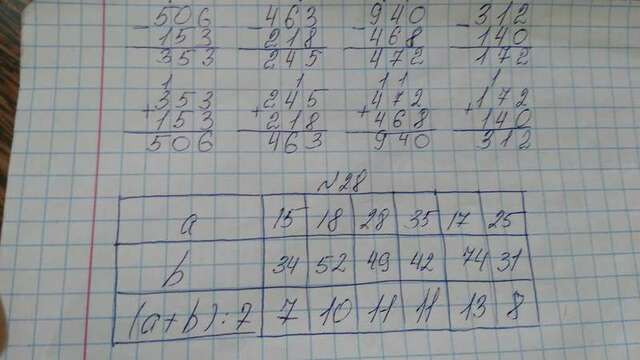 - 506 - 463 - 940 - 312
153 218 468 140
353 245 472 172
1 1 11 1
+ 353 + 245 + 472 + 172
153 218 468 140
506 463 940 312
№28
a 15 18 28 35 17 25
b 34 52 49 42 74 31
(a+b):7 7 10 11 11 13 8